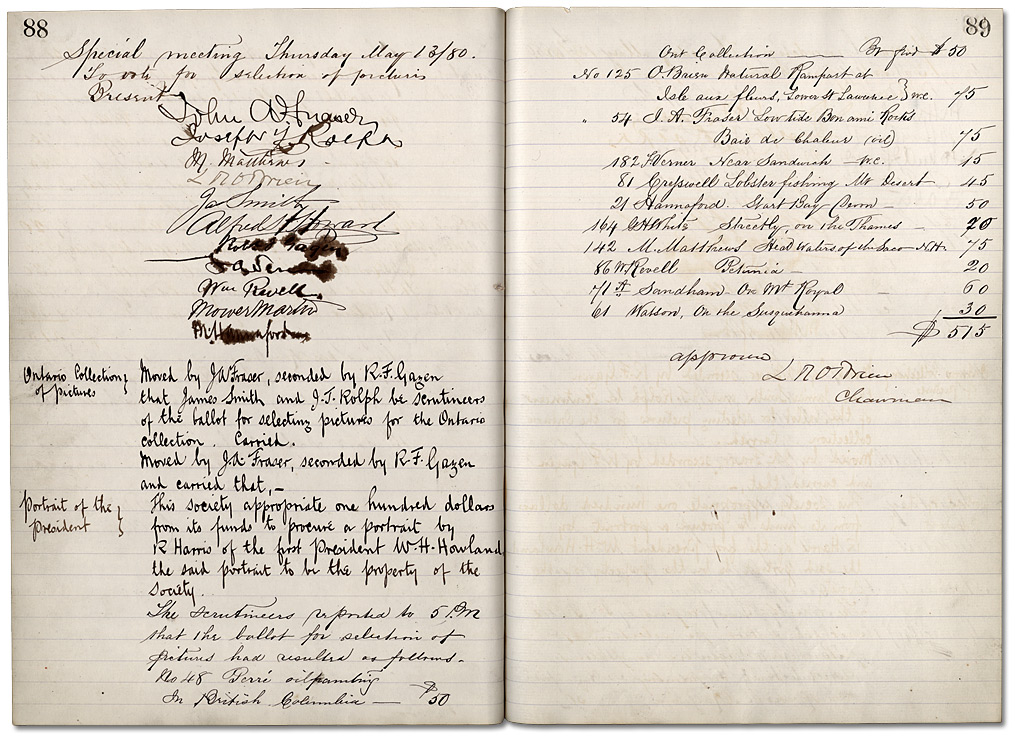 88
Special meeting Thursday May 13/80.
To vote for selection of pictures
Present
John A Fraser
Joseph T Rolph
M. Matthews
L R O'Brien
Ja Smith
Alfred H Howard
Robt F Gagen
Wm Revell
T Mower Martin
M Hannaford
Ontario Collection
of pictures
Moved by JA Fraser, seconded by R.F. Gagen
that James Smith and J.T. Rolph be scrutineers
of the ballot for selecting pictures for the Ontario
collection. Carried.
Moved by J.A Fraser, seconded by R.F. Gagen
and carried that,—
Portrait of the
President
This society appropriate one hundred dollars
from its funds to procure a portrait by
R Harris of the first President W.H. Howland
the said portrait to be the property of the
society.
The scrutineers reported to 5 P.M
that the ballot for selection of
pictures had resulted as follows—
No 48 Perré oilpainting
In British Columbia — $50
89
Ont Collection — Bt fwd $50
No 125 O.Brien Natural Rampart at
Isle aux fleurs, Lower St Lawrence } w.c. 75
" 54 J.A. Fraser Low tide Bon ami Rocks
Baie de Chaleur (oil) 75
182 F Verner Near Sandwich — w.c. 15
81 Cresswell Lobster fishing Mt Desert 45
21 Hannaford. Start Bay Devon — 50
164 GH White Streetly, on the Thames — 20
142 M. Matthews Head waters of the Saco N.H. 75
86 W Revell Petunia — 20
71 Sandham On Mt Royal — 60
61 Watson, On the Susquehanna 30
$515
approved
L R O'Brien
Chairman